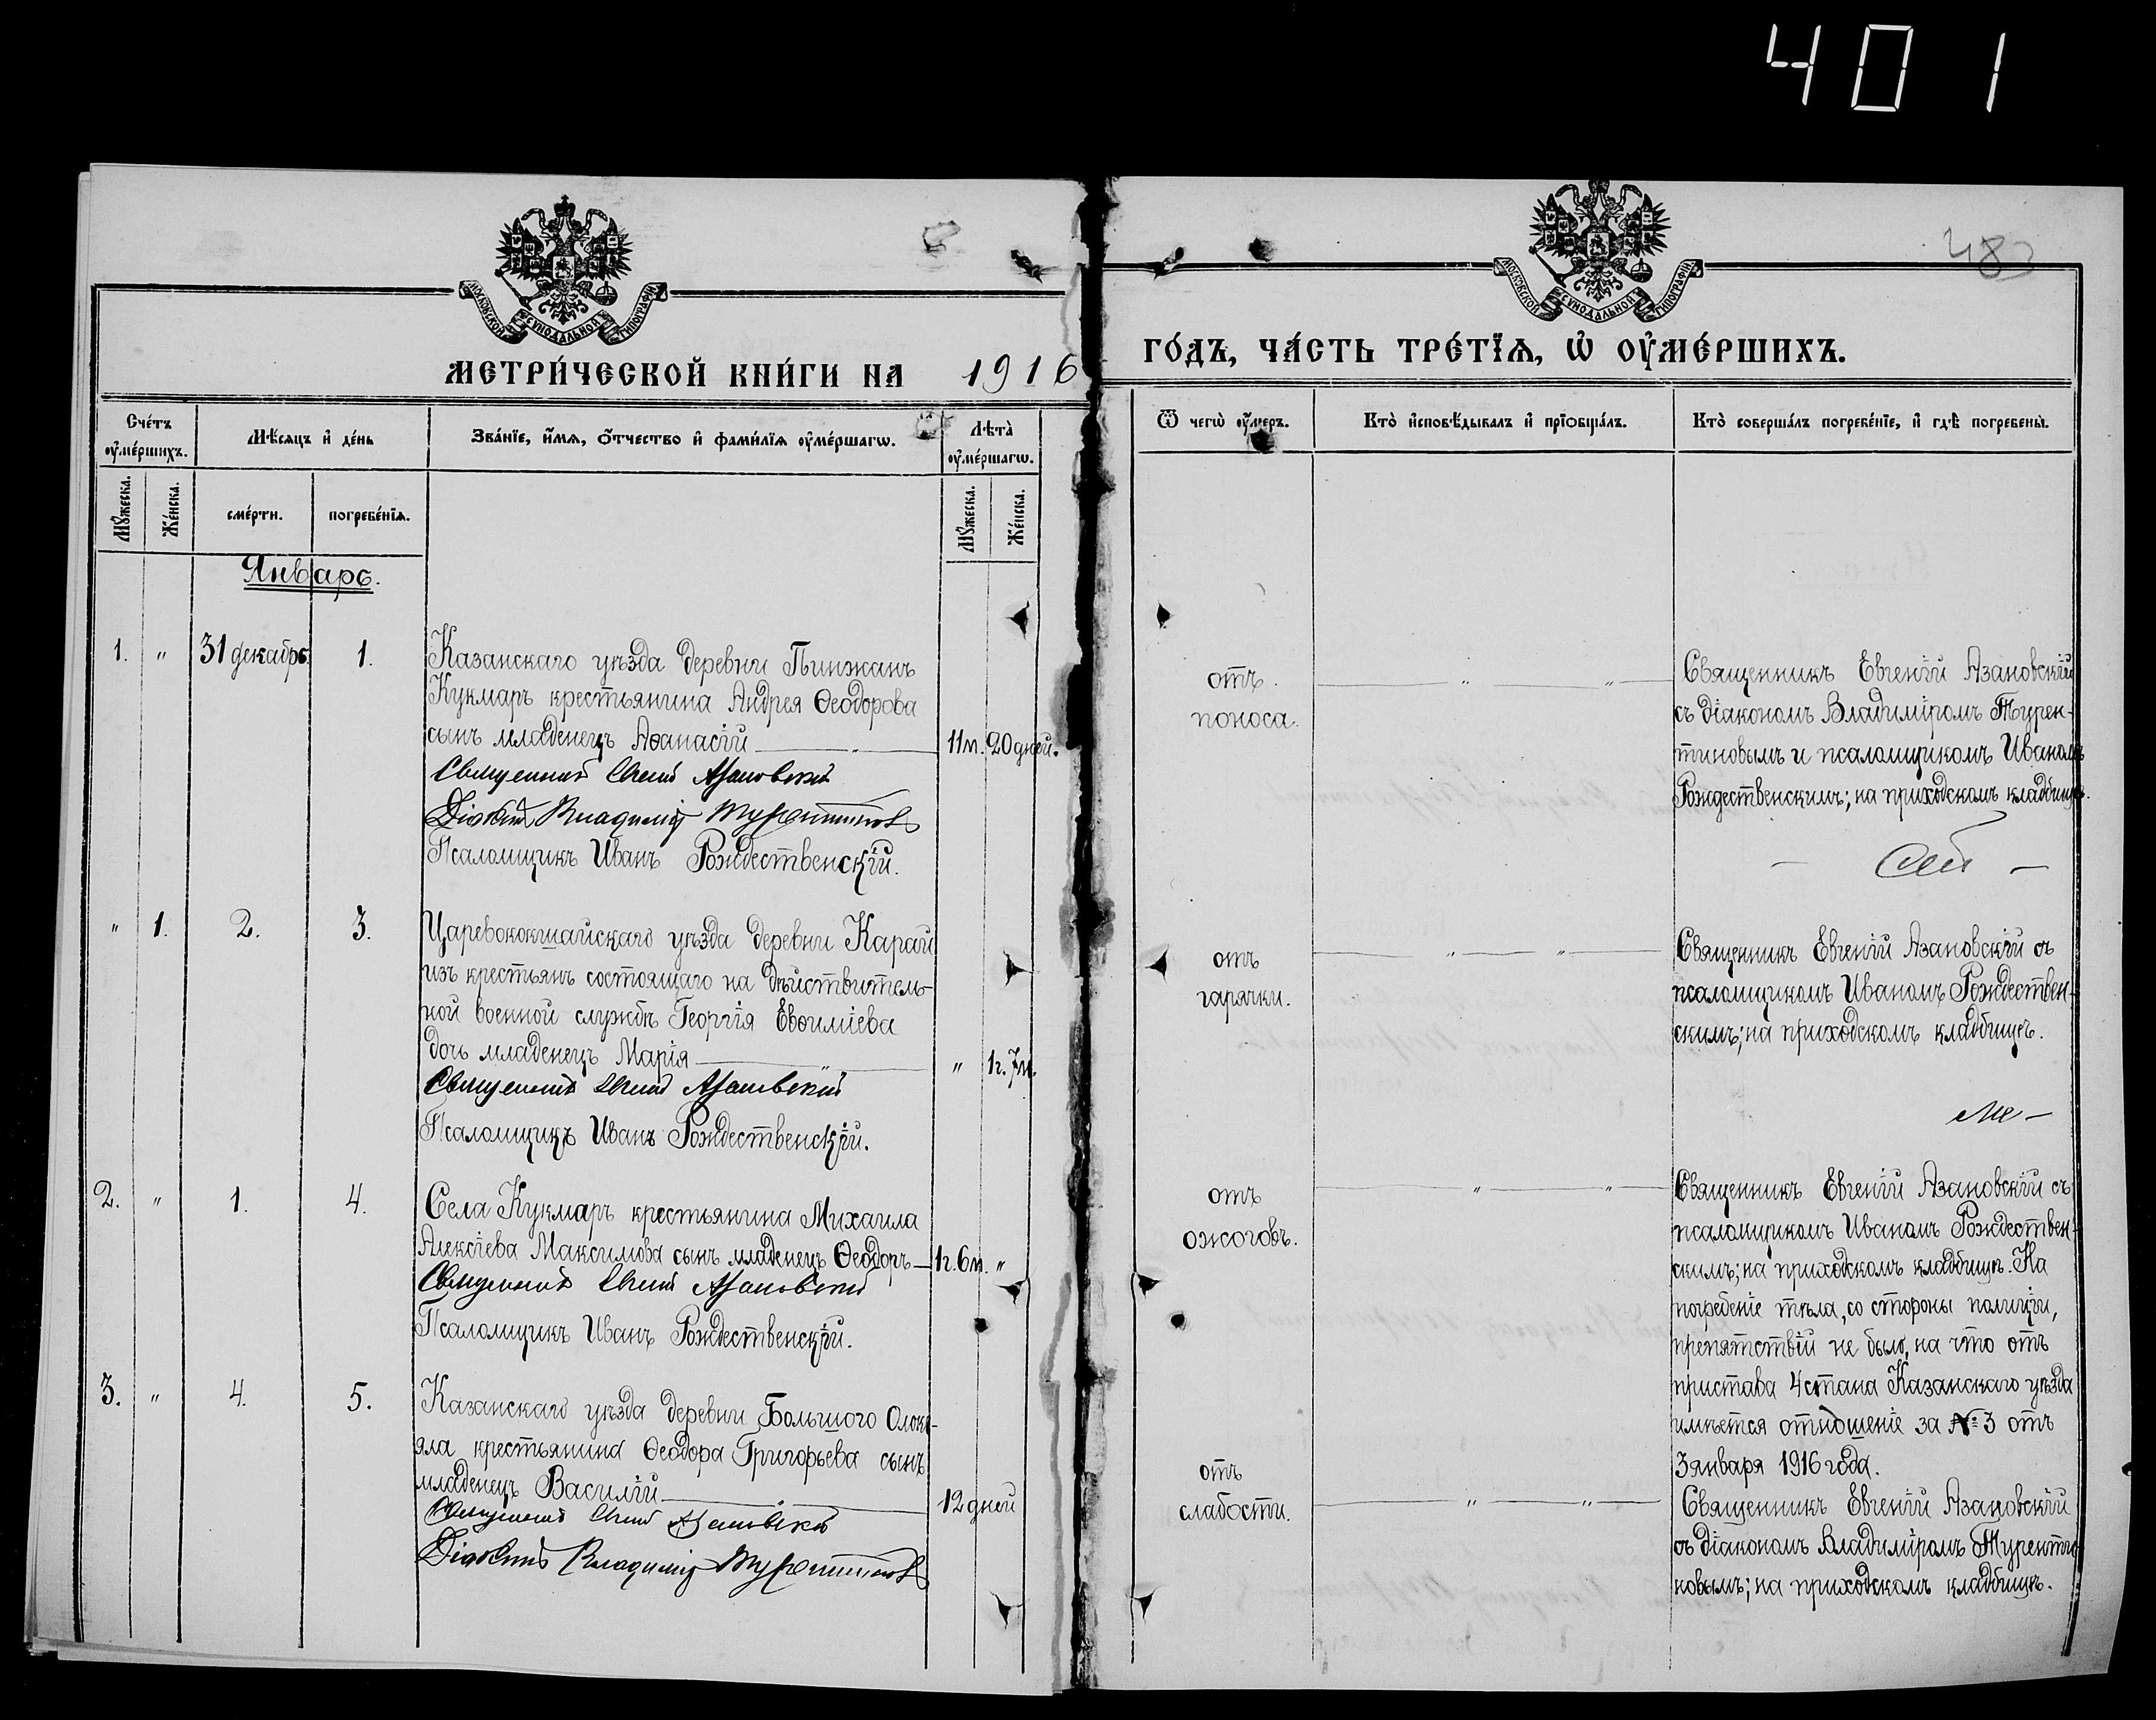 401
483
МОСКОВСКОЙ СѴНОДАЛЬНОЙ ТИПОГРАФІИ
МОСКОВСКОЙ СѴНОДАЛЬНОЙ ТИПОГРАФІИ
МЕТРИ́ЧЕСКОЙ КНИ́ГИ НА 1916
ГО́ДЪ, ЧА́СТЬ ТРЕ́ТЇѦ, Ѡ҆ ОУ҆МЕ́РШИХЪ.
Сче́тъ
оу҆ме́ршихъ.
Мꙋ́жеска.
Же́нска.
Мѣ́сяцъ и҆ де́нь
сме́рти.
погребе́нїѧ.
Зва́нїе, и҆́мѧ, ѻ҆́тчество и҆ фами́лїѧ оу҆ме́ршагѡ.
Лѣ́та
оу҆ме́ршагѡ.
Мꙋ́жеска.
Же́нска.
Ѿ чегѡ̀ оу҆́меръ.
Кто̀ и҆сповѣ́дывалъ и҆ прїѡбща́лъ.
Кто̀ соверша́лъ погребе́нїе, и҆ гдѣ̀ погребены̀.
Январь.
1. " 31 декабрь 1.
Казанскаго уѣзда деревни Пинжанъ
Кукмаръ крестьянина Андрея Ѳеодорова
сынъ младенецъ Аѳанасій
11 м. 20 дней.
Священникъ Евгеній Азановскій
Діаконъ Владиміръ Турентиновъ
Псаломщикъ Иванъ Рождественскій.
отъ
поноса.
Священникъ Евгеній Азановскій
съ діакономъ Владиміромъ Турен-
тиновымъ и псаломщикомъ Иваномъ
Рождественскимъ; на приходскомъ кладбищѣ.
" 1. 2. 3.
Царевококшайскаго уѣзда деревни Карай
изъ крестьянъ состоящаго на дѣйствитель-
ной военной службѣ Георгія Евѳиміева
дочь младенецъ Марія
" 1 г. 7 м.
Священникъ Евгеній Азановскій
Псаломщикъ Иванъ Рождественскій.
отъ
гарячки.
Священникъ Евгеній Азановскій съ
псаломщикомъ Иваномъ Рождествен-
скимъ; на приходскомъ кладбищѣ.
2. " 1. 4.
Села Кукмаръ крестьянина Михаила
Алексіева Максимова сынъ младенецъ Ѳеодоръ
1 г. 6 м. "
Священникъ Евгеній Азановскій
Псаломщикъ Иванъ Рождественскій.
отъ
ожоговъ.
Священникъ Евгеній Азановскій съ
псаломщикомъ Иваномъ Рождествен-
скимъ; на приходскомъ кладбищѣ. На
погребеніе тѣла, со стороны полиціи,
препятствій не было, на что отъ
пристава 4 стана Казанскаго уѣзда
имѣется отношеніе за № 3 отъ
3 января 1916 года.
3. " 4. 5.
Казанскаго уѣзда деревни Большого Олокъ-
яла крестьянина Ѳеодора Григорьева сынъ
младенецъ Василій
12 дней
Священникъ Евгеній Азановскій
Діаконъ Владиміръ Турентиновъ
отъ
слабости.
Священникъ Евгеній Азановскій
съ діакономъ Владиміромъ Туренти-
новымъ; на приходскомъ кладбищѣ.